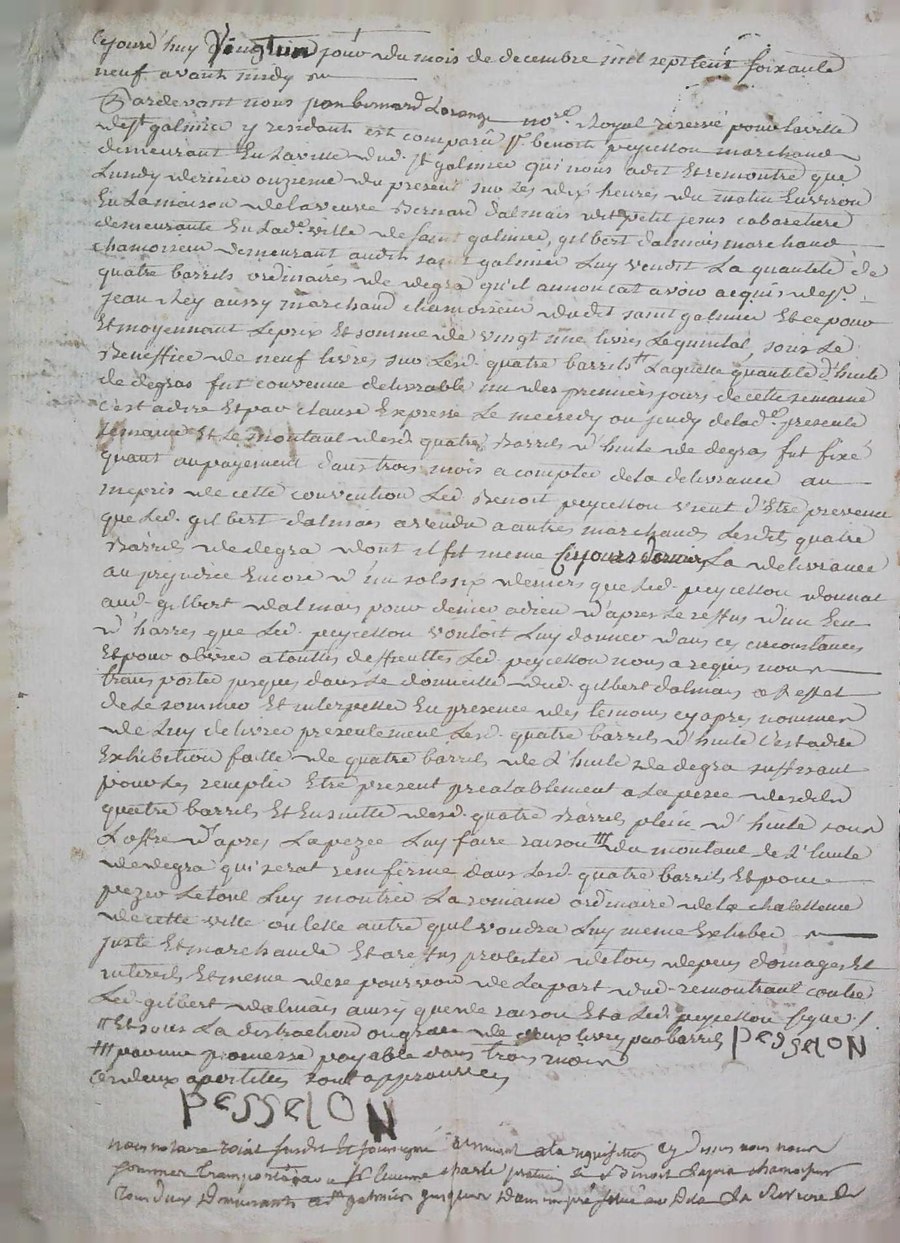 Cejourd'huy vingtun jour du mois de decembre mil sept cent soixante
neuf avant midy
Pardevant nous jean bernard Laronge no.re Royal réservé pour la ville
de s.t galmier y residant est comparû s.r benoit peycelon marchand
demeurant En La ville dud. s.t galmier qui nous a dit Et remontré que
Lundy dernier onzieme du present sur Les dix heures du matin Environ
En La maison de la veuve Bernard dalmais dit petit jesus cabaretiere
demeurante En Lad.e ville de saint galmier, gilbert dalmais marchand
chamoiseur demeurant audit saint galmier Luy vendit La quantité de
quatre barrils ordinaires de degra qu'il annoncat avoir acquis de s.r
jean Rey aussy marchand chamoiseur dudit saint galmier Et ce pour
Et moyennant Le prix Et somme de vingt une livres Le quintal, sous Le
Beneffice de neuf livres sur Lesd. quatre barrils Laquelle quantité d'huile
de degras fut convenue delivrable un des premiers jours de cette semaine
c'est adire Et par clause Expresse Le mecredy ou jeudy de lad.e presente
semaine Et Le montant desd. quatre Barrils d'huile de degras fut fixé
quant au payement dans trois mois a compter de la delivrance au
mepris de cette convention Led. Benoit peycelon vient d'Etre prevenu
que Led. gilbert dalmais a vendu a autres marchands Lesdits quatre
Barrils de degra dont il fit meme Cejours dernier La delivrance
au prejudice Encore d'un sol six deniers que Led. peycelon donnat
aud. gilbert dalmais pour denier adieu d'apres Le reffus d'un Ecu
d'harres que Led. peycelon vouloit Luy donner dans ces circonstances
Et pour obvier a touttes deffeuttes Led. peycelon nous a requis nous
transporter jusques dans Le domicille dud. gilbert dalmais a L'effet
de Le sommer Et interpeller En presence des temoins cy apres nommés
de Luy delivrer presentement Lesd. quatre barrils d'huile c'est adire
Exhibition faitte de quatre barrils de L'huile de degra suffisant
pour Les remplir Etre present prealablement a La pezée desdits
quatre barrils Et Ensuitte desd. quatre Barrils plein d'huile sous
L'offre d'apres La pezée Luy faire raison du montant de L'huile
de degra qui serat renfermé dans Lesd. quatre barrils Et pour
pezer Letout Luy montrer La romaine ordinaire de la chatellenie
de cette ville ou telle autre qu'il voudra Luy meme Exhiber
juste Et marchande Et a reffus protester de tous depens domages Et
interets Et meme de se pourvoir de La part dud. remontrant contre
Led. gilbert dalmais ainsy que de raison Et a Led. peycelon signé /
Et sous La distraction ou grace de deux livres par barrils PESSELON
par une promesse payable dans trois mois
Ces deux apostilles sont approuvées
PESSELON
nous notaire royal susdit Et soussigné a la requisition cy dessus nous nous
sommes transportés chamoiseur
tous deux demeurants a s.t galmier jusques dans de la Riviere de